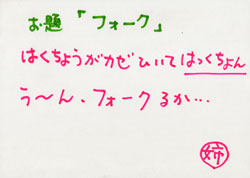 お題「フォーク」
はくちょうがカゼひいてはっくちょん
う〜ん、フォークるか…
姉